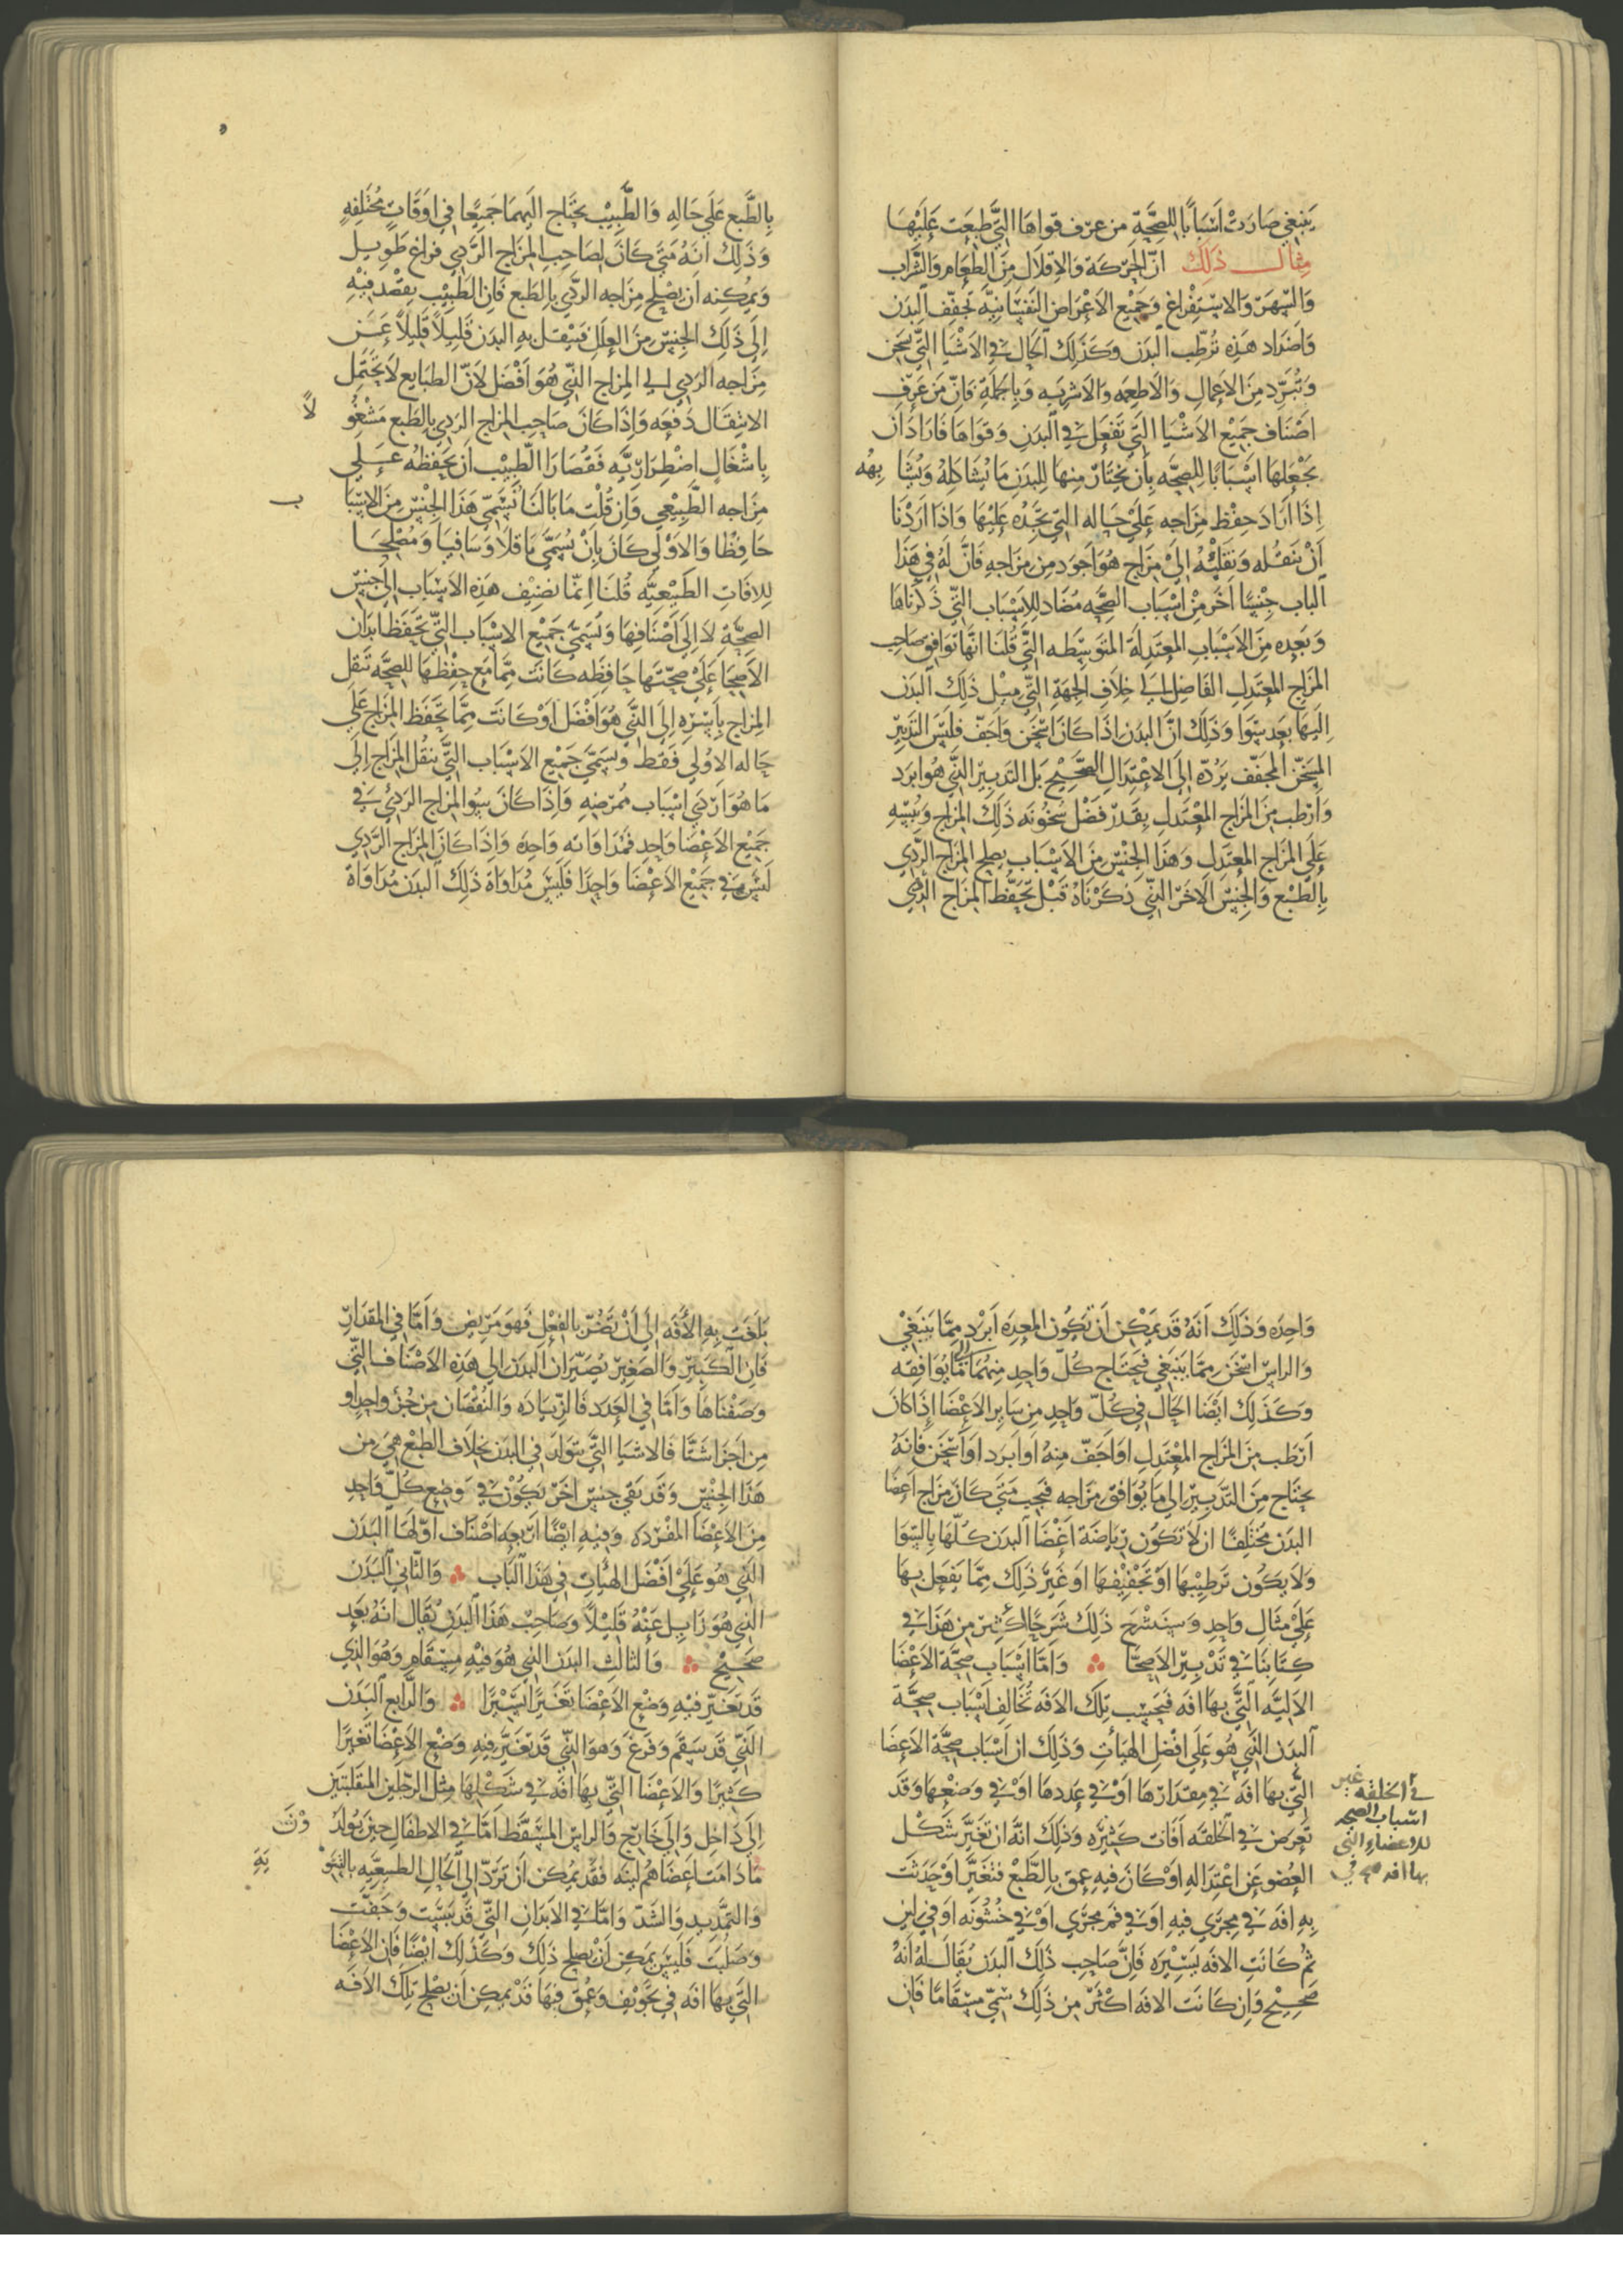 ينبغي صارت أسبابًا للصحّة من عرف قواها التي طبعت عليها
مثال ذلك انّ الحركة والاقلال من الطعام والشراب
والسهر والاستفراغ وجميع الاعراض النفسانيّة تجفّف البدن
واضداد هذه تُرطّب البدن وكذلك الحال في الاشيا التي تسخن
وتُبرّد من الاعمال والاطعمه والاشربه وبالجملة فانّ من عرف
اصناف جميع الاشيا التي تفعل في البدن وقواها فاراد أن
يجعلها اسبابًا للصحّه بأن يختار منها للبدن ما يُشاكله ويُشا بهُه
إذا اراد حفظ مزاجه على حاله التي تجده عليها واذا اردنا
أن ننقُله ونقلبُه إلى مزاج هو اجود من مزاجه فانّ له في هذا
الباب جنسًا آخر من اسباب الصحّه مُضاد للاسباب التي ذكرناها
وبعده من الاسباب المعتدلة المتوسّطه التي قُلنا انها توافق صاحب
المزاج المعتدل الفاضل إلى خلاف الجهة التي ميل ذلك البدن
اليها بعد سوا وذلك انّ البدن إذا كان اسخن واجفّ فليس التدبير
المسخّن المجفّف يردّه إلى الاعتدال الصّحيح بل التدبير الذي هو ابرد
وارطب من المزاج المعتدل بقدر فضل سُخونه ذلك المزاج ويبسه
على المزاج المعتدل وهذا الجنس من الاسباب يصلح المزاج الرّدي
بالطبع والجنس الاخر الذي ذكرناهُ قبل يحفظ المزاج الردي
بالطّبع على حاله والطّبيب يحتاج اليهما جميعًا في اوقات مُختلفه
وذلك انهُ متى كان لصاحب المزاج الرّدي فراغ طويل
ويُمكنه ان يصلح مزاجه الردي بالطبع فان الطبيب يقصد فيه
إلى ذلك الجنس من العلل فينقل به البدن قليلًا قليلًا عن
مزاجه الردي الى المزاج الذي هُو افضل لانّ الطبايع لا تحتمل
الانتقال دفعه واذا كان صاحب المزاج الردي بالطبع مشغُو لاً
باشغال اضطراريّه فقُصارا الطّبيب أن يحفظهُ على
مزاجه الطّبيعي وان قُلت ما بالنا نُسمّي هذا الجنس من الاسبا ب
حافظا والاولى كان بأن يُسمّى ناقلا وشافيا ومُصلحا
للافات الطبيعيّه قُلنا انّما نضيف هذه الاسباب إلى جنس
الصحّة لا إلى اصنافها ونُسمّي جميع الاسباب التي تحفظ ابدان
الاصحّا على صحّتها حافظه كانت ممّا مع حفظها للصحّه تنقل
المزاج بأسره إلى الذي هو افضل او كانت ممّا تحفظ المزاج على
حاله الاولى فقط ونُسمّي جميع الاسباب التي تنقُل المزاج إلى
ما هو اردى اسباب مُمرضه واذا كان سُو المزاج الردي في
جميع الاعضا واحد فمُداواته واحدة واذا كان المزاج الرّدي
ليس هو في جميع الاعضا واحدًا فليس مُداواة ذلك البدن مُداواة
واحده وذلك أنهُ قد يمكن أن تكُون المعدة ابرد ممّا ينبغي
والراس اسخن ممّا ينبغي فيحتاج كلّ واحد منهُما الى ما يُوافقه
وكذلك ايضا الحال في كُلّ واحد من ساير الاعضا إذا كان
ارطب من المزاج المعتدل او أجفّ منهُ او ابرد او أسخن فانهُ
يحتاج من التدبير إلى ما يوافق مزاجه فيجب متى كان مزاج اعضا
البدن مُختلفًا ان لا تكون رياضة اعضا البدن كُلّها بالسّوا
ولا يكون ترطيبها أو تجفيفها او غير ذلك ممّا يفعل بها
على مثال واحد وسنشرح ذلك شرحًا أكثر من هذا في
كتابنا في تدبير الاصحّا وامّا أسباب صحّة الاعضا
الاليّه التي بها افه فبحسب تلك الافه تُخالف اسباب صحّة
البدن الذي هُو على افضل الهيأت وذلك ان اسباب صحّة الاعضا
التي بها افه في مقدارها أو في عددها أو في وضعها وقد
تعرض في الخلقه آفات كثيره وذلك انّه ان تغيّر شكل
العُضو عن اعتداله او كان فيه عمق بالطّبع فتغيّر او حدثت
به افه في مجرى فيه او في فم مجرى او في خُشُونه او في لين
ثُم كانت الافه يسيره فانّ صاحب ذلك البدن يُقال لهُ انهُ
صحيح وان كانت الافه اكثر من ذلك سُمّي مسقامًا فان
في الخلقه غير
اسباب الصحه
للاعضاء التي
بها افه في
بلغت به الأفه إلى أن تضُرّ بالفعل فهو مريض وأمّا في المقدار
فان الكبير والصّغير يُصيّران البدن الى هذه الاصناف التي
وصفناها وأمّا في العدد فالزّيادة والنُقصان من جُزؤ واحد او
من اجزا شتّا فالاشيا التي تتولّد في البدن بخلاف الطبع هي من
هذا الجنس وقد بقي جنس اخر يكون في وضع كُلّ واحد
من الاعضا المفرده وفيه ايضًا اربعه اصناف اوّلها البدن
الذي هو على افضل الهيات في هذا الباب والثّاني البدن
الذي هو زايل عنهُ قليلًا وصاحب هذا البدن يُقال انهُ بعد
صحيح والثالث البدن الذي هو فيه مسقام وهو الذي
قد تغيّر فيه وضع الاعضا تغيّرًا يسيرًا والرّابع البدن
الذي قد سقم وفرغ وهو الذي قد تغيّر فيه وضع الاعضا تغيرًا
كثيرًا والاعضا التي بها افه في شكلها مثل الرّجلين المنقلبتين
إلى داخل والى خارج والراس المُسفّط أمّا في الاطفال حين يُولد ونَ
ما دامت اعضاهُم لينه فقد يمكن ان تردّ إلى الحال الطبيعيّه بالتسو يَةِ
والتمديد والشدّ وأمّا في الابدان التي قد يبست وجفّت
وصلُبت فليس يمكن أن يصلح ذلك وكذلك ايضًا فان الاعضا
التي بها افه في تجويف وعُمق فيها قد يمكن ان يصلح تلك الافه